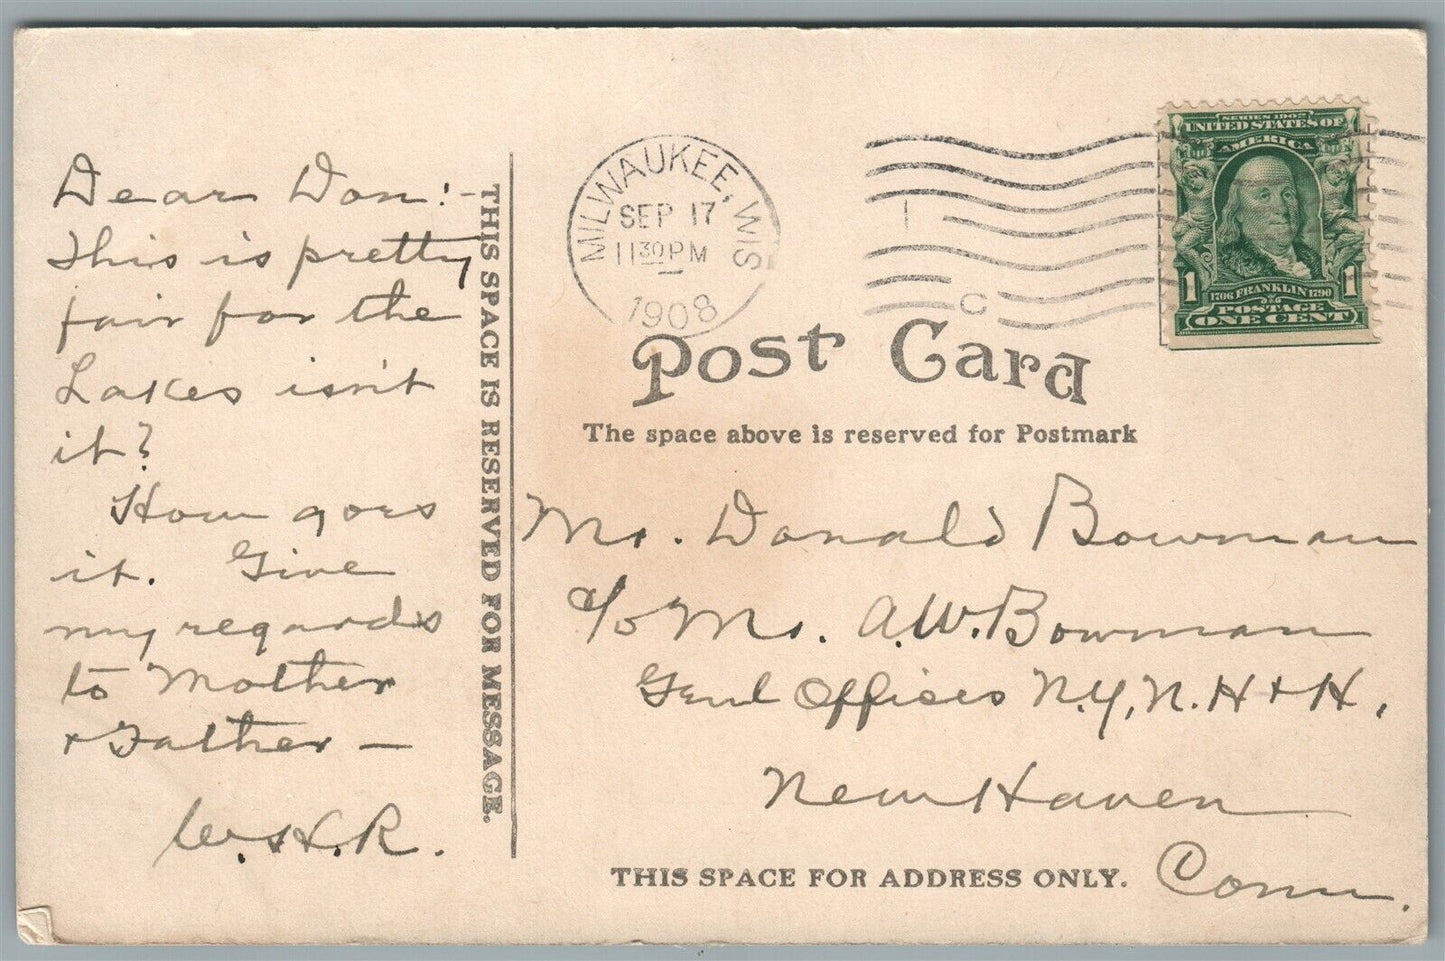 Dear Don:-
This is pretty
fair for the
Lakes isn't
it?
How goes
it. Give
my regards
to Mother
+ Father —
W.H.R.
THIS SPACE IS RESERVED FOR MESSAGE.
MILWAUKEE, WIS
SEP 17
11 30 PM
1908
1
C
SERIES 1902
UNITED STATES OF
AMERICA
1 1
1706 FRANKLIN 1790
POSTAGE
ONE CENT
Post Card
The space above is reserved for Postmark
Mr. Donald Bowman
c/o Mr. A.W. Bowman
Genl Offices N.Y, N.H + H.
New Haven
Conn.
THIS SPACE FOR ADDRESS ONLY.